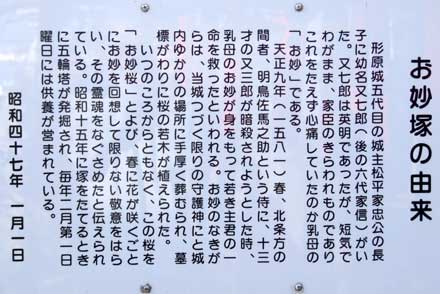 お妙塚の由来
形原城五代目の城主松平家忠公の長
子に幼名又七郎（後の六代家信）がい
た。又七郎は英明であったが、短気で
わがまま、家臣のきらわれものであり
これをたえず心痛していたのが乳母の
「お妙」である。
天正九年（一五八一）春、北条方の
間者、明鳥佐馬之助という侍に、十三
才の又三郎が暗殺されようとした時、
乳母のお妙が身をもって若き主君の一
命を救ったといわれる。お妙のなきが
らは、当城つづく限りの守護神にと城
内ゆかりの場所に手厚く葬むられ、墓
標がわりに桜の若木が植えられた。
いつのころからともなく、この桜を
「お妙桜」とよび、春に花が咲くごと
にお妙を回想して限りない敬意をはら
い、その霊魂をなぐさめたと伝えられ
ている。昭和十五年に塚をたてるとき
に五輪塔が発掘され、毎年二月第一日
曜日には供養が営まれている。
昭和四十七年 一月一日